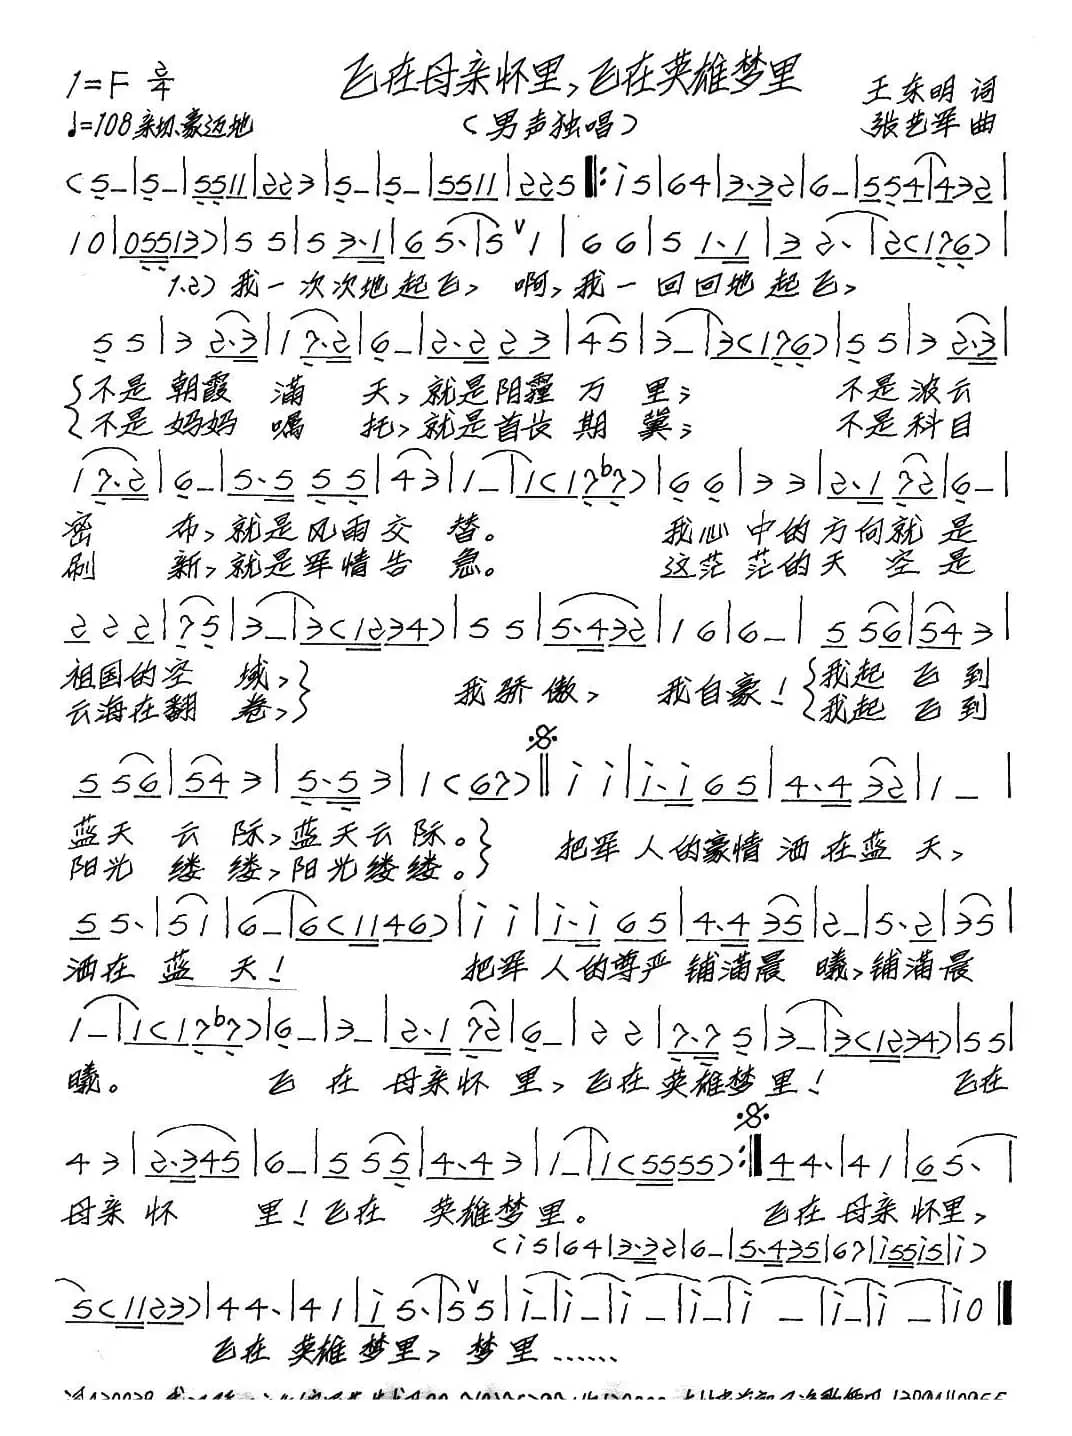 1=F 2/4 飞在母亲怀里,飞在英雄梦里 王东明 词
♩=108 亲切、豪迈地 (男声独唱) 张艺军 曲
(5_|5_|5511|223|5_|5_|5511|225‖:i5|64|3·32|6_|554|432|
10|05513)|55|53·1|65·|5ˇ1|66|51·1|32·|2(176)|
1.2) 我一次次地起飞, 啊,我一回回地起飞,
55|32·3|17·2|6_|2·223|45|3_|3(176)|55|32·3|
不是朝霞满天,就是阴霾万里; 不是波云
不是妈妈嘱托,就是首长期冀; 不是科目
17·2|6_|5·555|43|1_|1(17♭7)|66|33|2·172|6_|
密布,就是风雨交替。 我心中的方向就是
刷新,就是军情告急。 这茫茫的天空是
222|75|3_|3(1234)|55|5·432|16|6_|556|543|
祖国的空域,} 我骄傲, 我自豪! {我起飞到
云海在翻卷,} {我起飞到
556|543|5·53|1(67)‖ii|i·i65|4·432|1_|
蓝天云际,蓝天云际。} 把军人的豪情洒在蓝天,
阳光缕缕,阳光缕缕。}
55·|5i|6_|6(1146)|ii|i·i65|4·435|2_|5·2|35|
洒在蓝天! 把军人的尊严铺满晨曦,铺满晨
1_|1(17♭7)|6_|3_|2·172|6_|22|7·75|3_|3(1234)|55|
曦。 飞在母亲怀里,飞在英雄梦里! 飞在
43|2·345|6_|555|4·43|1_|1(5555):‖44·|41|65·|
母亲怀里!飞在英雄梦里。 飞在母亲怀里,
(i5|64|3·32|6_|5·435|67|i55i5|i)
5(1123)|44·|41|i5·|5ˇ5|i_|i_|i_|i_|i_|i_|i0‖
飞在英雄梦里,梦里……